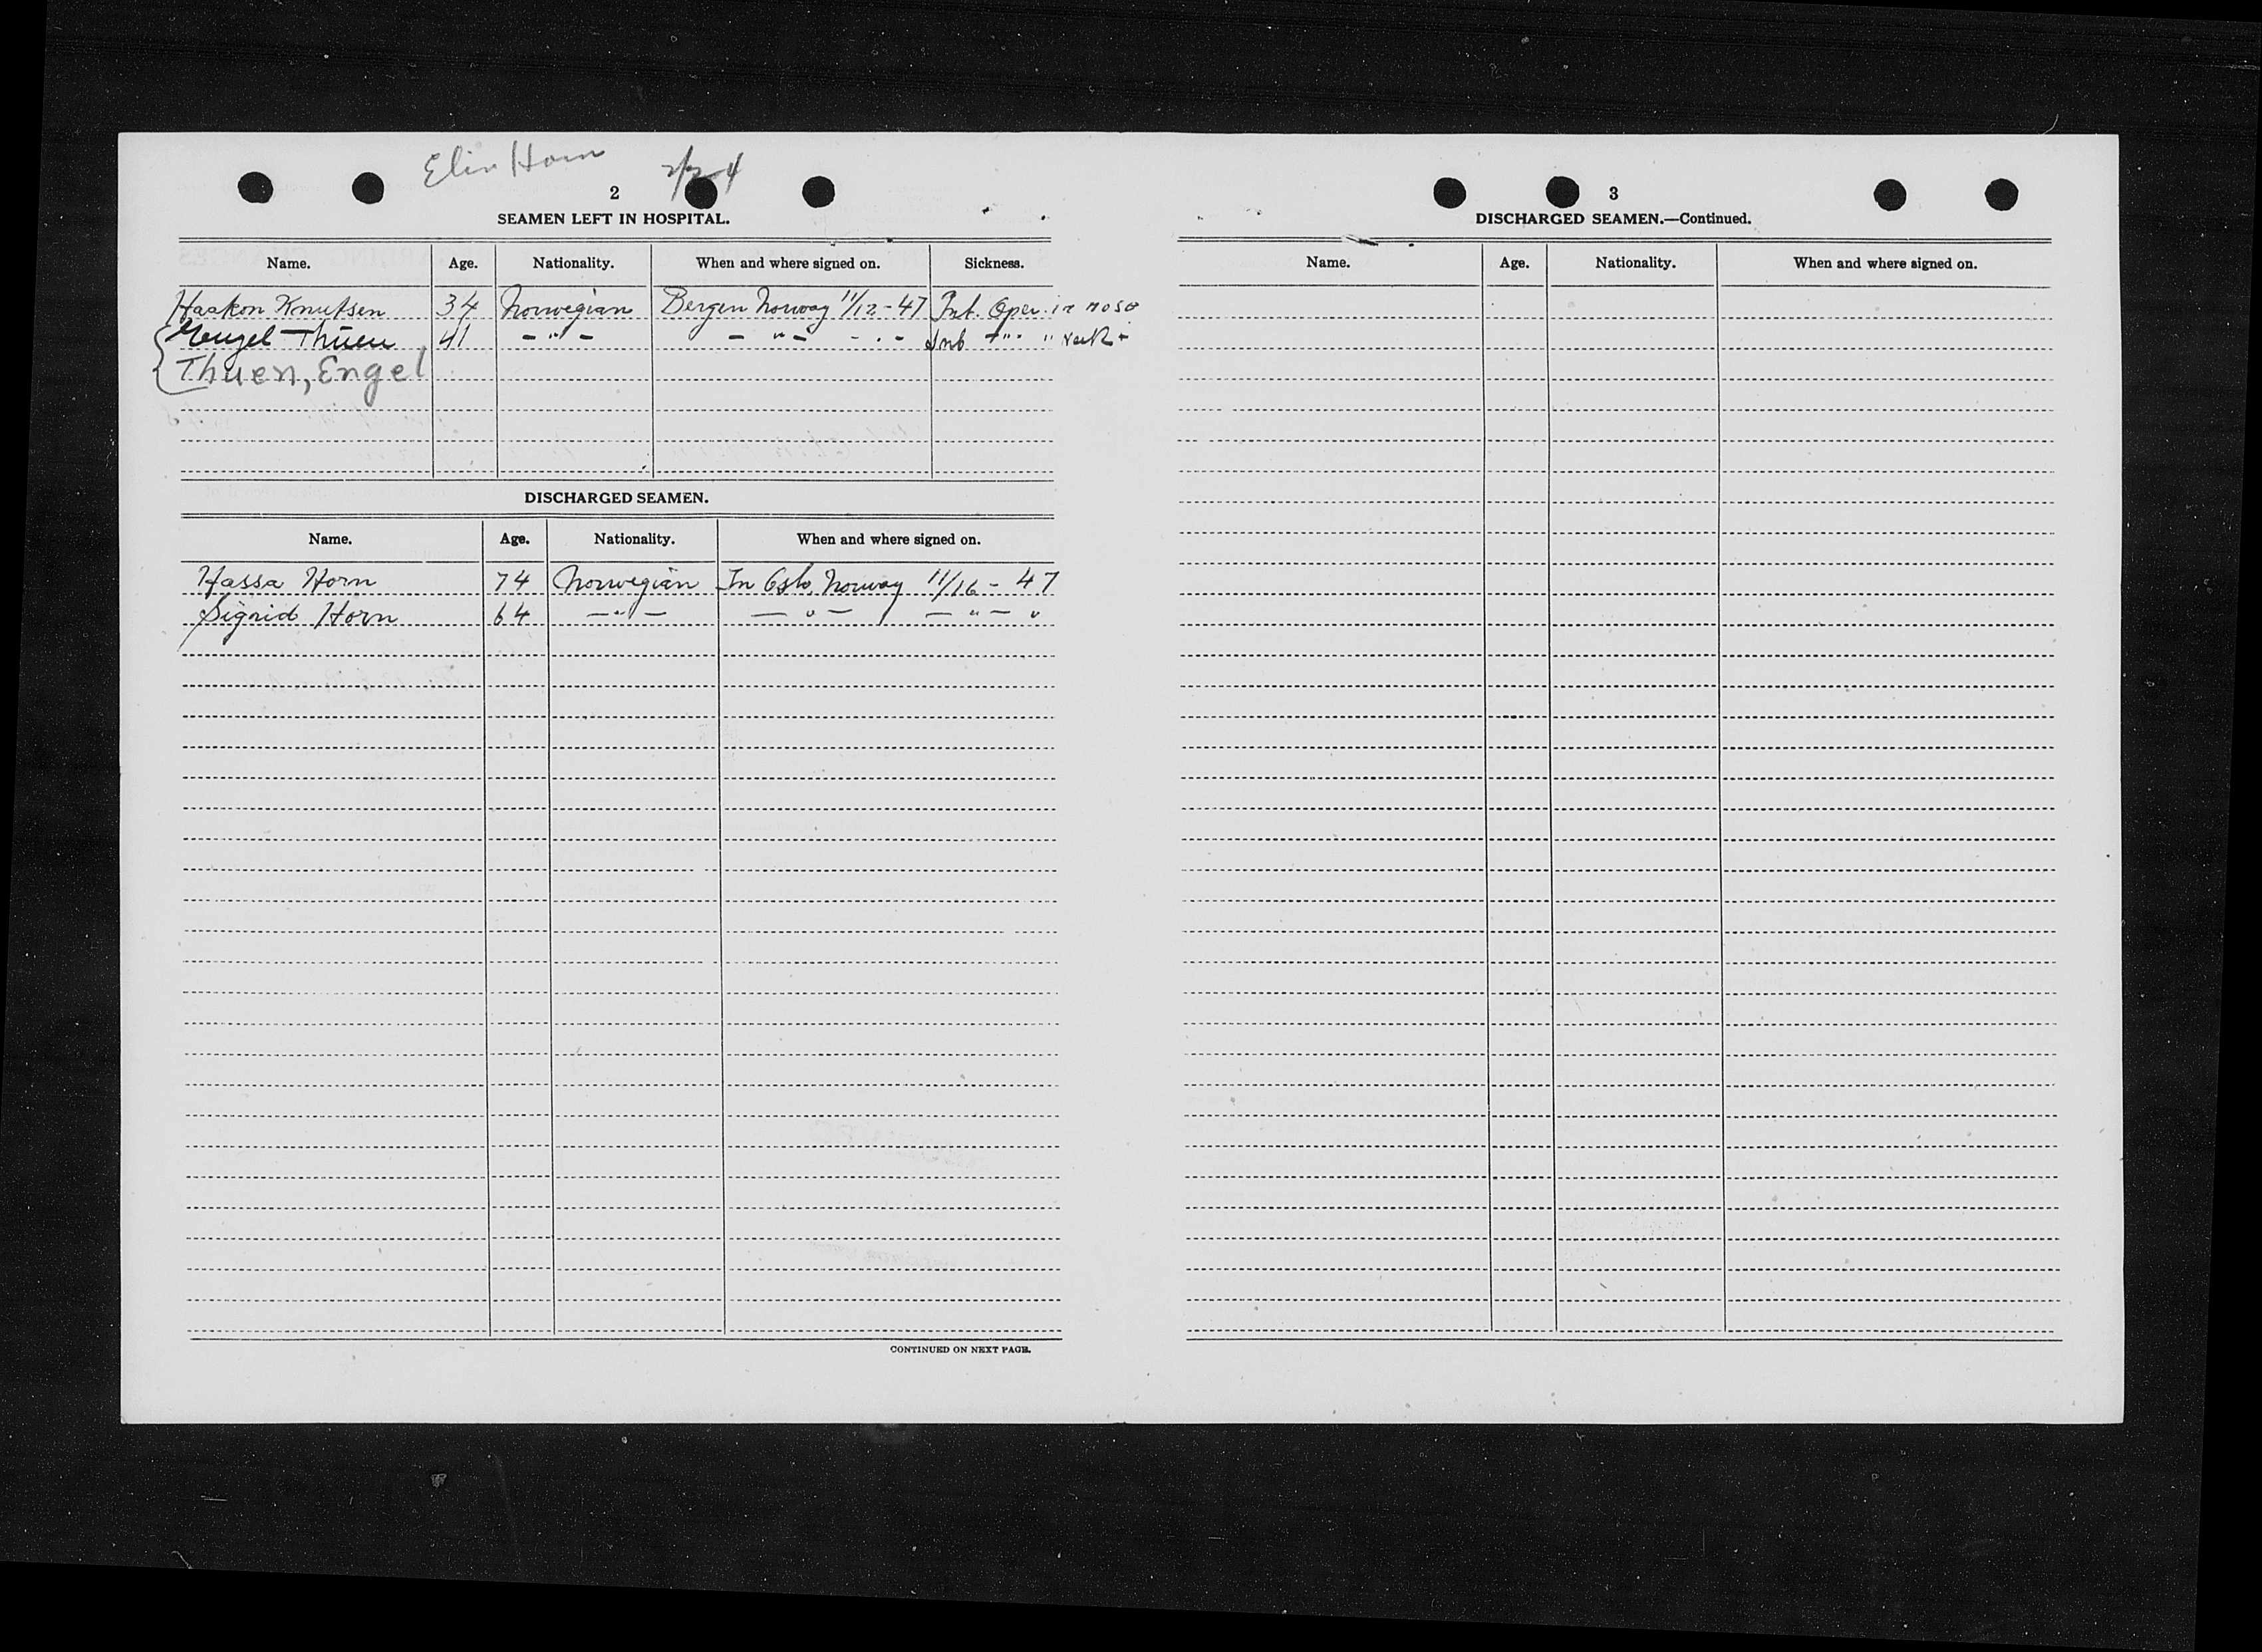 Elin Horn
2
SEAMEN LEFT IN HOSPITAL.
Name. Age. Nationality. When and where signed on. Sickness.
Haakon Knutsen 34 Norwegian Bergen Norway 11/12-47 Int. Oper. in nose
Thuen 41 - " - - " - - . -
Thuen, Engel
DISCHARGED SEAMEN.
Name. Age. Nationality. When and where signed on.
Hassa Horn 74 Norwegian In Oslo, Norway 11/16 - 47
Sigrid Horn 64 - " - - " - - " - "
CONTINUED ON NEXT PAGE.
3
DISCHARGED SEAMEN.—Continued.
Name. Age. Nationality. When and where signed on.